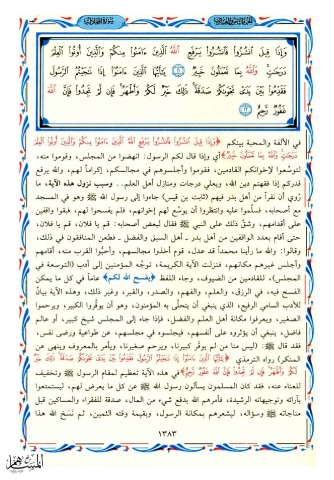 سورة المجادلة
وَإِذَا قِيلَ ٱنشُزُوا۟ فَٱنشُزُوا۟ يَرْفَعِ ٱللَّهُ ٱلَّذِينَ ءَامَنُوا۟ مِنكُمْ وَٱلَّذِينَ أُوتُوا۟ ٱلْعِلْمَ
دَرَجَٰتٍ ۚ وَٱللَّهُ بِمَا تَعْمَلُونَ خَبِيرٌ ١١ يَٰٓأَيُّهَا ٱلَّذِينَ ءَامَنُوٓا۟ إِذَا نَٰجَيْتُمُ ٱلرَّسُولَ
فَقَدِّمُوا۟ بَيْنَ يَدَىْ نَجْوَىٰكُمْ صَدَقَةً ۚ ذَٰلِكَ خَيْرٌ لَّكُمْ وَأَطْهَرُ ۚ فَإِن لَّمْ تَجِدُوا۟ فَإِنَّ ٱللَّهَ
غَفُورٌ رَّحِيمٌ ١٢
في الألفة والمحبة بينكم ﴿وَإِذَا قِيلَ ٱنشُزُوا۟ فَٱنشُزُوا۟ يَرْفَعِ ٱللَّهُ ٱلَّذِينَ ءَامَنُوا۟ مِنكُمْ وَٱلَّذِينَ أُوتُوا۟ ٱلْعِلْمَ
دَرَجَٰتٍ وَٱللَّهُ بِمَا تَعْمَلُونَ خَبِيرٌ﴾ أي وإذا قال لكم الرسول: انهضوا من المجلس، وقوموا منه،
لتوسّعوا لإخوانكم القادمين، فقوموا وأجلسوهم في مجالسكم، إكراماً لهم، والله يرفع
قدركم إذا فقهتم دين الله، ويعلي درجات ومنازل أهل العلم.. وسبب نزول هذه الآية، ما
رُوي أن نفراً من أهل بدر فيهم (ثابت بن قيس) جاءوا إلى رسول الله ﷺ وهو في المسجد
مع أصحابه، فسلّموا عليه وانتظروا أن يوسّع لهم إخوانهم، فلم يفسحوا لهم، فبقوا واقفين
على أقدامهم، وشقّ ذلك على النبي ﷺ فقال لبعض أصحابه: قم يا فلان، قم يا فلان،
حتى أقام بعدد الواقفين من أهل بدر ـ أهل السبق والفضل ـ فطعن المنافقون في ذلك،
وقالوا: والله ما رأينا محمداً قد عدل، قوم أخذوا مجالسهم، وأحبُّوا القرب منه، أقامهم
وأجلس غيرهم مكانهم، فنزلت الآية الكريمة، توجّه المؤمنين إلى أدب (التوسعة في
المجلس)، للقادمين من الضيوف، وجاء اللفظ ﴿يفسح الله لكم﴾ عاماً في كل ما يمكن
الفسح فيه، في الرزق، والعلم، والفهم، والصدر، والقبر، وغير ذلك، وهذه الآية بيانٌ
للأدب السامي الرفيع، الذي ينبغي أن يتحلَّى به المؤمنون، وهو أن يوقّروا الكبير، ويرحموا
الصغير، ويعرفوا مكانة أهل العلم والفضل، فإذا جاء إلى المجلس شيخ كبير، أو عالم
فاضل، ينبغي أن يؤثروه على أنفسهم، فيجلسوه في مجلسهم، عن طواعية ورضى نفس،
فقد قال ﷺ: (ليس منا من لم يوقّر كبيرنا، ويرحم صغيرنا، ويأمر بالمعروف وينهى عن
المنكر) رواه الترمذي ﴿يَٰٓأَيُّهَا ٱلَّذِينَ ءَامَنُوٓا۟ إِذَا نَٰجَيْتُمُ ٱلرَّسُولَ فَقَدِّمُوا۟ بَيْنَ يَدَىْ نَجْوَىٰكُمْ صَدَقَةً ذَٰلِكَ خَيْرٌ
لَّكُمْ وَأَطْهَرُ فَإِن لَّمْ تَجِدُوا۟ فَإِنَّ ٱللَّهَ غَفُورٌ رَّحِيمٌ﴾ في هذه الآية تعظيم لمقام الرسول ﷺ وتخفيف
للعناء عنه، فقد كان المسلمون يسألون رسول الله ﷺ عن كل ما يعرض لهم، ليستمتعوا
بآرائه وتوجيهاته الرشيدة، فأمرهم الله بدفع شيء من المال، صدقة للفقراء والمساكين قبل
مناجاته ﷺ وسؤاله، ليشعرهم بمكانة الرسول، وبقيمة وقته الثمين، ثم نَسَخ الله هذا
١٣٨٣